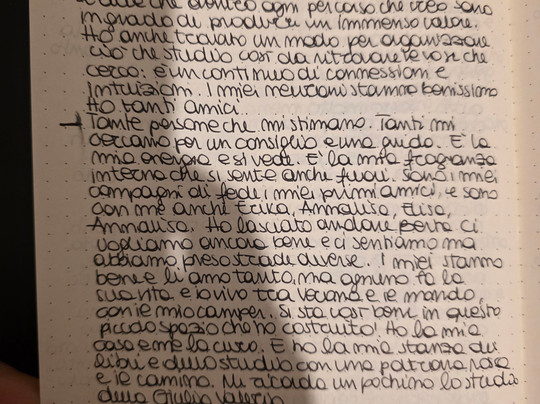 che divento ogni percorso che creo sono
in grado di produrre un immenso valore.
Ho anche trovato un modo per organizzare
ciò che studio così da ritrovare le cose che
cerco: è un continuo di connessioni e
intuizioni. I miei neuroni stanno benissimo
Ho tanti amici.
Tante persone che mi stimano. Tanti mi
cercano per un consiglio e una guida. È la
mia energia e si vede. È la mia fragranza
interna che si sente anche fuori. Sono i miei
compagni di fede i miei primi amici, e sono
con me anche Erika, Annalisa, Elisa,
Annalisa. Ho lasciato andare ci
vogliamo ancora bene e ci sentiamo ma
abbiamo preso strade diverse. I miei stanno
bene e li amo tanto, ma ognuno fa la
sua vita e io vivo tra Verona e il mondo,
con il mio camper. Si sta così bene in questo
piccolo spazio che ho costruito! Ho la mia
casa e me la curo. E ho la mia stanza dei
libri e dello studio con una poltrona rosa
e il camino. Mi ricorda un pochino lo studio
della Giulia Valerio